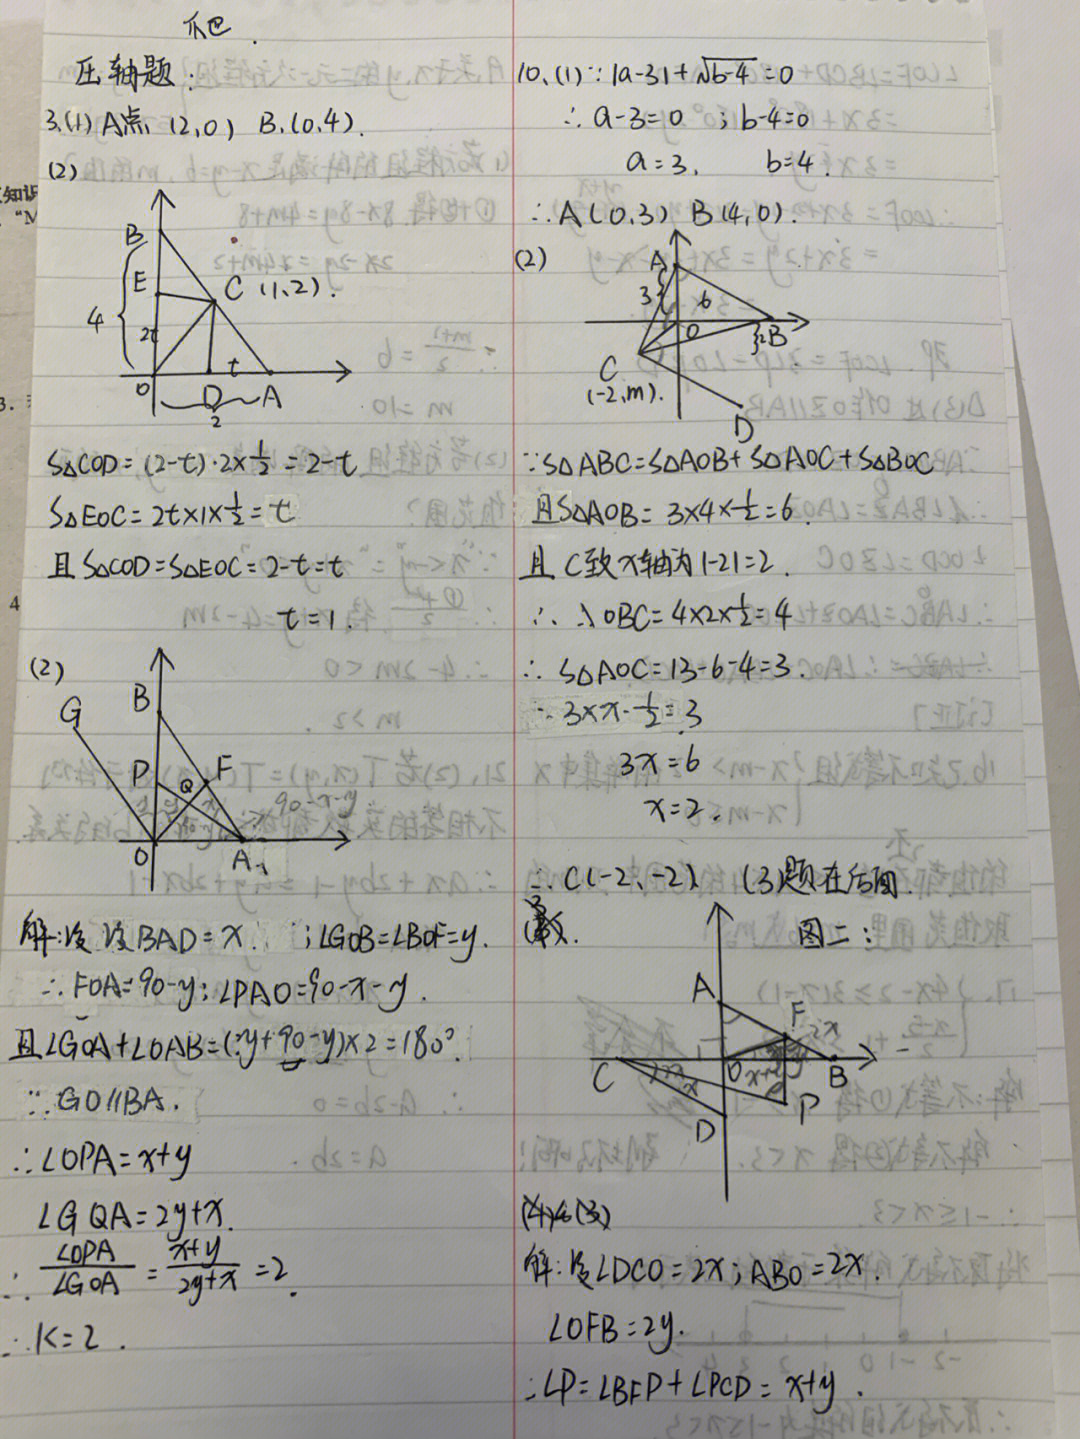 压轴题:
3.(1) A点 (2,0) B.(0,4).
(2)
B
E
C (1,2).
4
2t
t
O
D
A
2
S△COD=(2-t)·2×1/2=2-t
S△EOC=2t×1×1/2=t
且S△COD=S△EOC=2-t=t
t=1.
(2)
G
B
P
Q
F
90-x-y
O
A
解:设 设BAD=x. ;∠GOB=∠BOF=y.
∴FOA=90-y;∠PAO=90-x-y.
且∠GOA+∠OAB=(y+90-y)×2=180°.
∵GO//BA.
∴∠OPA=x+y
∠GQA=2y+x.
∴∠OPA/∠GOA=x+y/2y+x=2.
∴K=2.
10.(1)∵|a-3|+√b-4=0
∴a-3=0 ;b-4=0
a=3, b=4.
∴A(0,3) B(4,0).
(2)
A
3
6
O
B
2
C
(-2,m).
D
∵S△ABC=S△AOB+S△AOC+S△BOC
且S△AOB=3×4×1/2=6.
且C致x轴为|-2|=2.
∴△OBC=4×2×1/2=4
∴S△AOC=13-6-4=3.
∴3×x·1/2=3
3x=6
x=2.
∴C(-2,-2) (3)题在后面.
图二:
A
F
2x
C
2x
x
O
B
P
D
(3)
解:设∠DCO=2x;ABO=2x.
∠OFB=2y.
∴∠P=∠BFP+∠PCD=x+y.